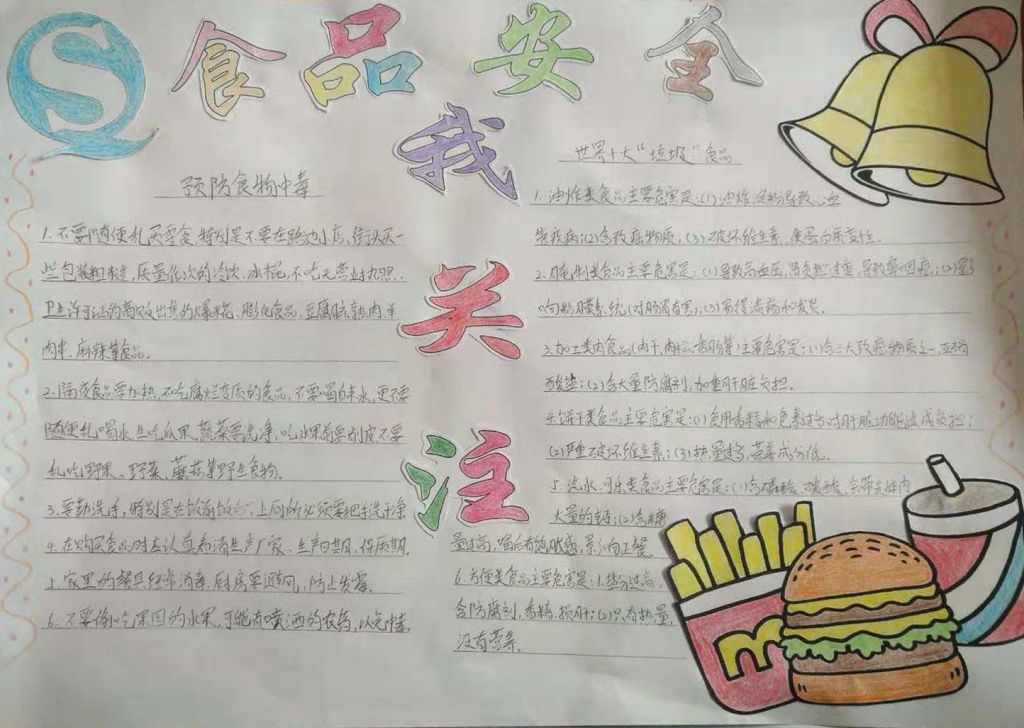 S
食品安全
我
关
注
预防食物中毒
1.不要随便乱买零食,特别是不要在路边小店、街头买一
些包装粗糙,质量低次的冷饮、冰棍,不吃无营业执照、
卫生许可证的商贩出售的爆米花、膨化食品、
肉串、麻辣等食品。
2.隔夜食品要加热,不吃腐烂变质的食品,不要喝自来水,更不要
随便乱喝水,生吃瓜果、蔬菜要洗净,吃水果前要削皮不要
乱吃野果、野菜、蘑菇等野生食物。
3.要勤洗手,特别是在饭前饭后,上厕所必须要把手洗干净
4.在购买食品时应认真看清生产厂家、生产日期、保质期。
5.家里的餐具经常消毒,厨房要通风,防止发霉。
6.不要偷吃果园的水果,可能有喷洒的农药,以免中毒。
世界十大“垃圾”食品
1.油炸类食品主要危害是:(1)油炸淀粉导致心血
管疾病;(2)含致癌物质;(3)破坏维生素,使蛋白质变性。
2.腌制类食品主要危害是:(1)导致高血压,肾负担过重,导致鼻咽癌;(2)影
响粘膜系统(对肠胃有害);(3)易得溃疡和发炎。
3.加工类肉食品(肉干、肉松、香肠等)主要危害是:(1)含三大致癌物质之一,亚硝
酸盐;(2)含大量防腐剂,加重肝脏负担。
4.饼干类食品主要危害是:(1)食用香精和色素过多对肝脏功能造成负担;
(2)严重破坏维生素;(3)热量过多、营养成分低。
5.汽水、可乐类食品主要危害是:(1)含磷酸、碳酸,会带走体内
大量的钙;(2)含糖
量过高,喝后有饱胀感,影响正餐
6.方便类食品主要危害是:1.盐分过高,
含防腐剂,香精,损肝;(2)只有热量,
没有营养。
m